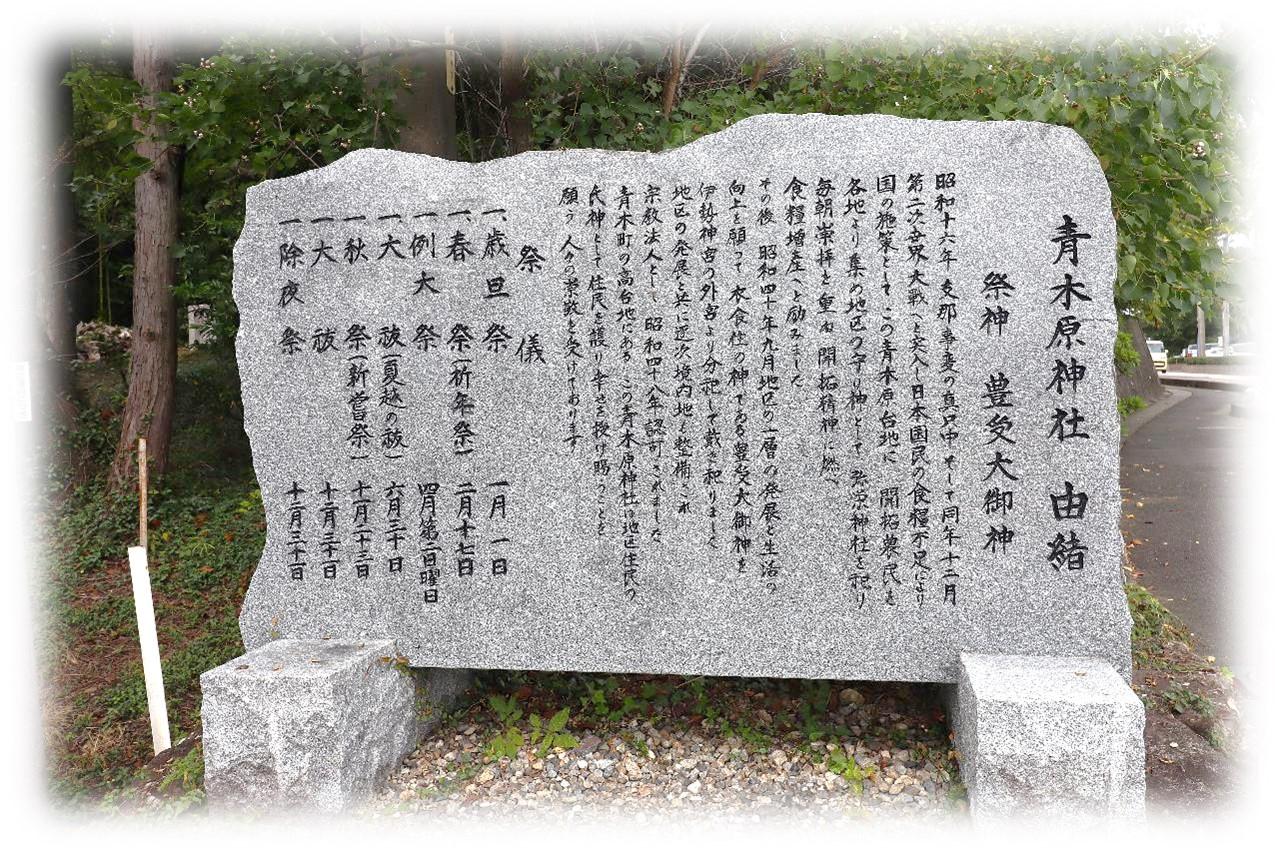 青木原神社 由緒
祭神 豊受大御神
昭和十六年 支那事変の真只中 そして同年十二月
第二次世界大戦へと突入し日本国民の食糧不足により
国の施策として、この青木原台地に 開拓農民を
各地より集め地区の守り神として 弥栄神社を祀り
毎朝崇拝を重ね 開拓精神に燃へ
食糧増産へと励みました
その後 昭和四十年九月地区の一層の発展と生活の
向上を願って 衣食住の神である豊受大御神を
伊勢神宮の外宮より分祀して戴き祀りました
地区の発展と共に逐次境内地も整備され
宗教法人として 昭和四十八年認可されました
青木町の高台地にある この青木原神社は地区住民の
氏神として 住民を護り幸せを授け賜うことを
願う 人々の崇敬を受けております
祭儀
一、歳旦祭 一月一日
一、春祭(祈年祭) 二月十七日
一例大祭 四月第二日曜日
一大祓(夏越の祓) 六月三十日
一秋祭(新嘗祭) 十一月二十三日
一大祓 十二月三十一日
一除夜祭 十二月三十一日